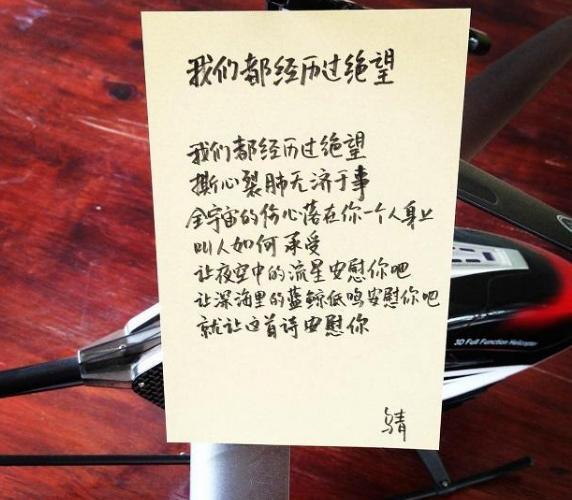 我们都经历过绝望
我们都经历过绝望
撕心裂肺无济于事
全宇宙的伤心落在你一个人身上
叫人如何承受
让夜空中的流星安慰你吧
让深海里的蓝鲸低鸣安慰你吧
就让这首诗安慰你
3D Full Function Helicopter